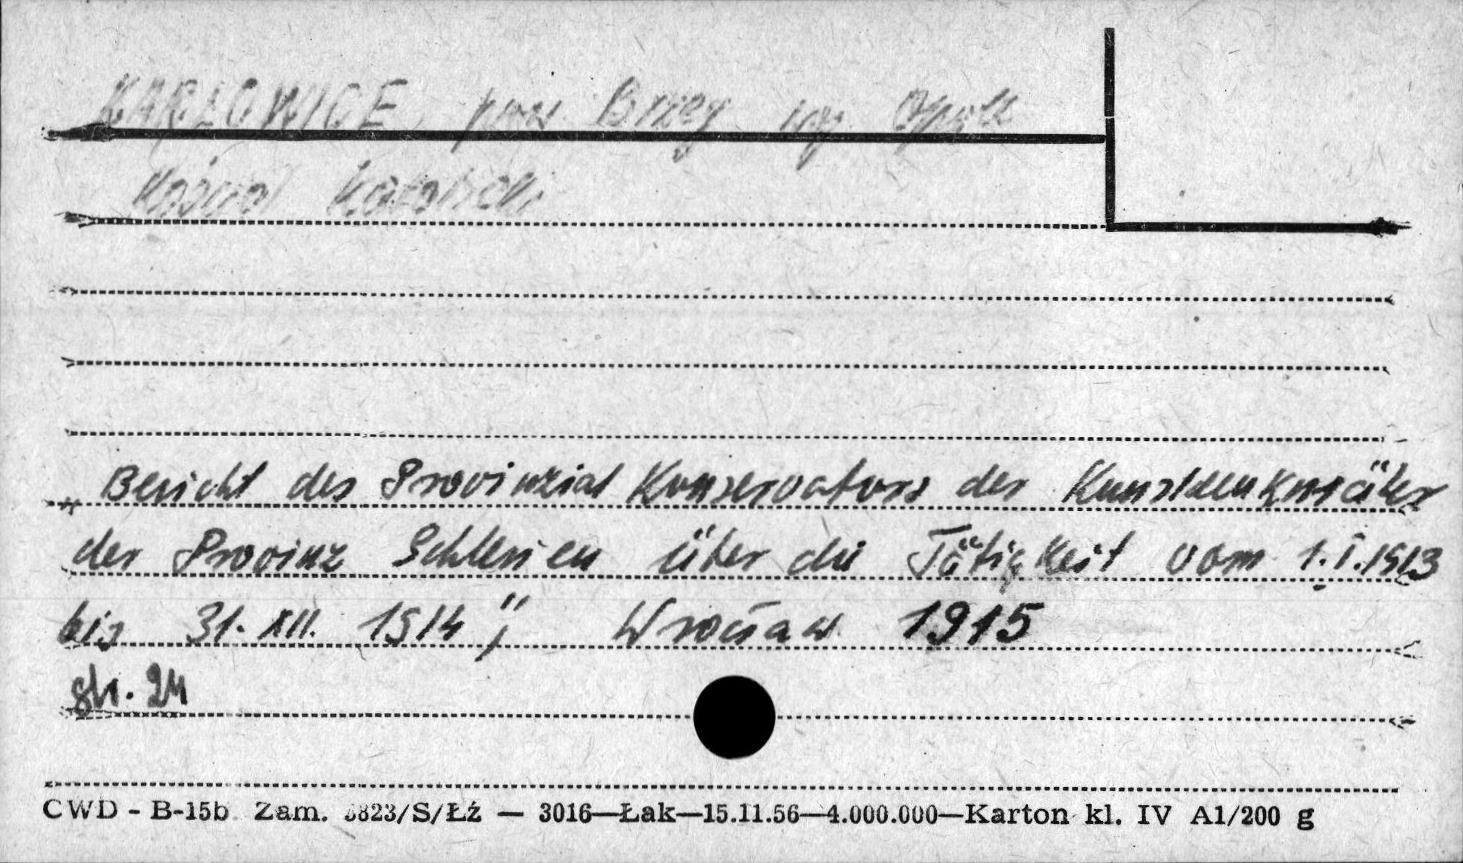 KARŁOWICE pow Brzeg woj Opole
Kościół Katolicki
Bericht des Provinzial Konservators der Kunstdenkmäler
der Provinz Schlesien über die Tätigkeit vom 1.I.1913
bis 31. XII. 1914", Wrocław 1915
str. 24
CWD - B-15b Zam. 3823/S/Łź — 3016—Łak—15.11.56—4.000.000—Karton kl. IV A1/200 g